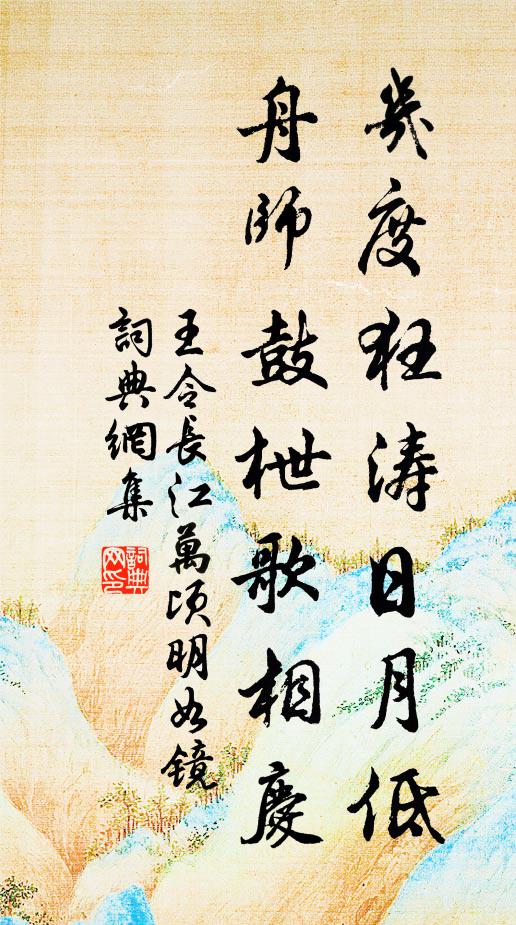 幾度狂涛日月低
舟師鼓枻歌相慶
王令長江萬頃明如鏡
詞典網集
詞典網印